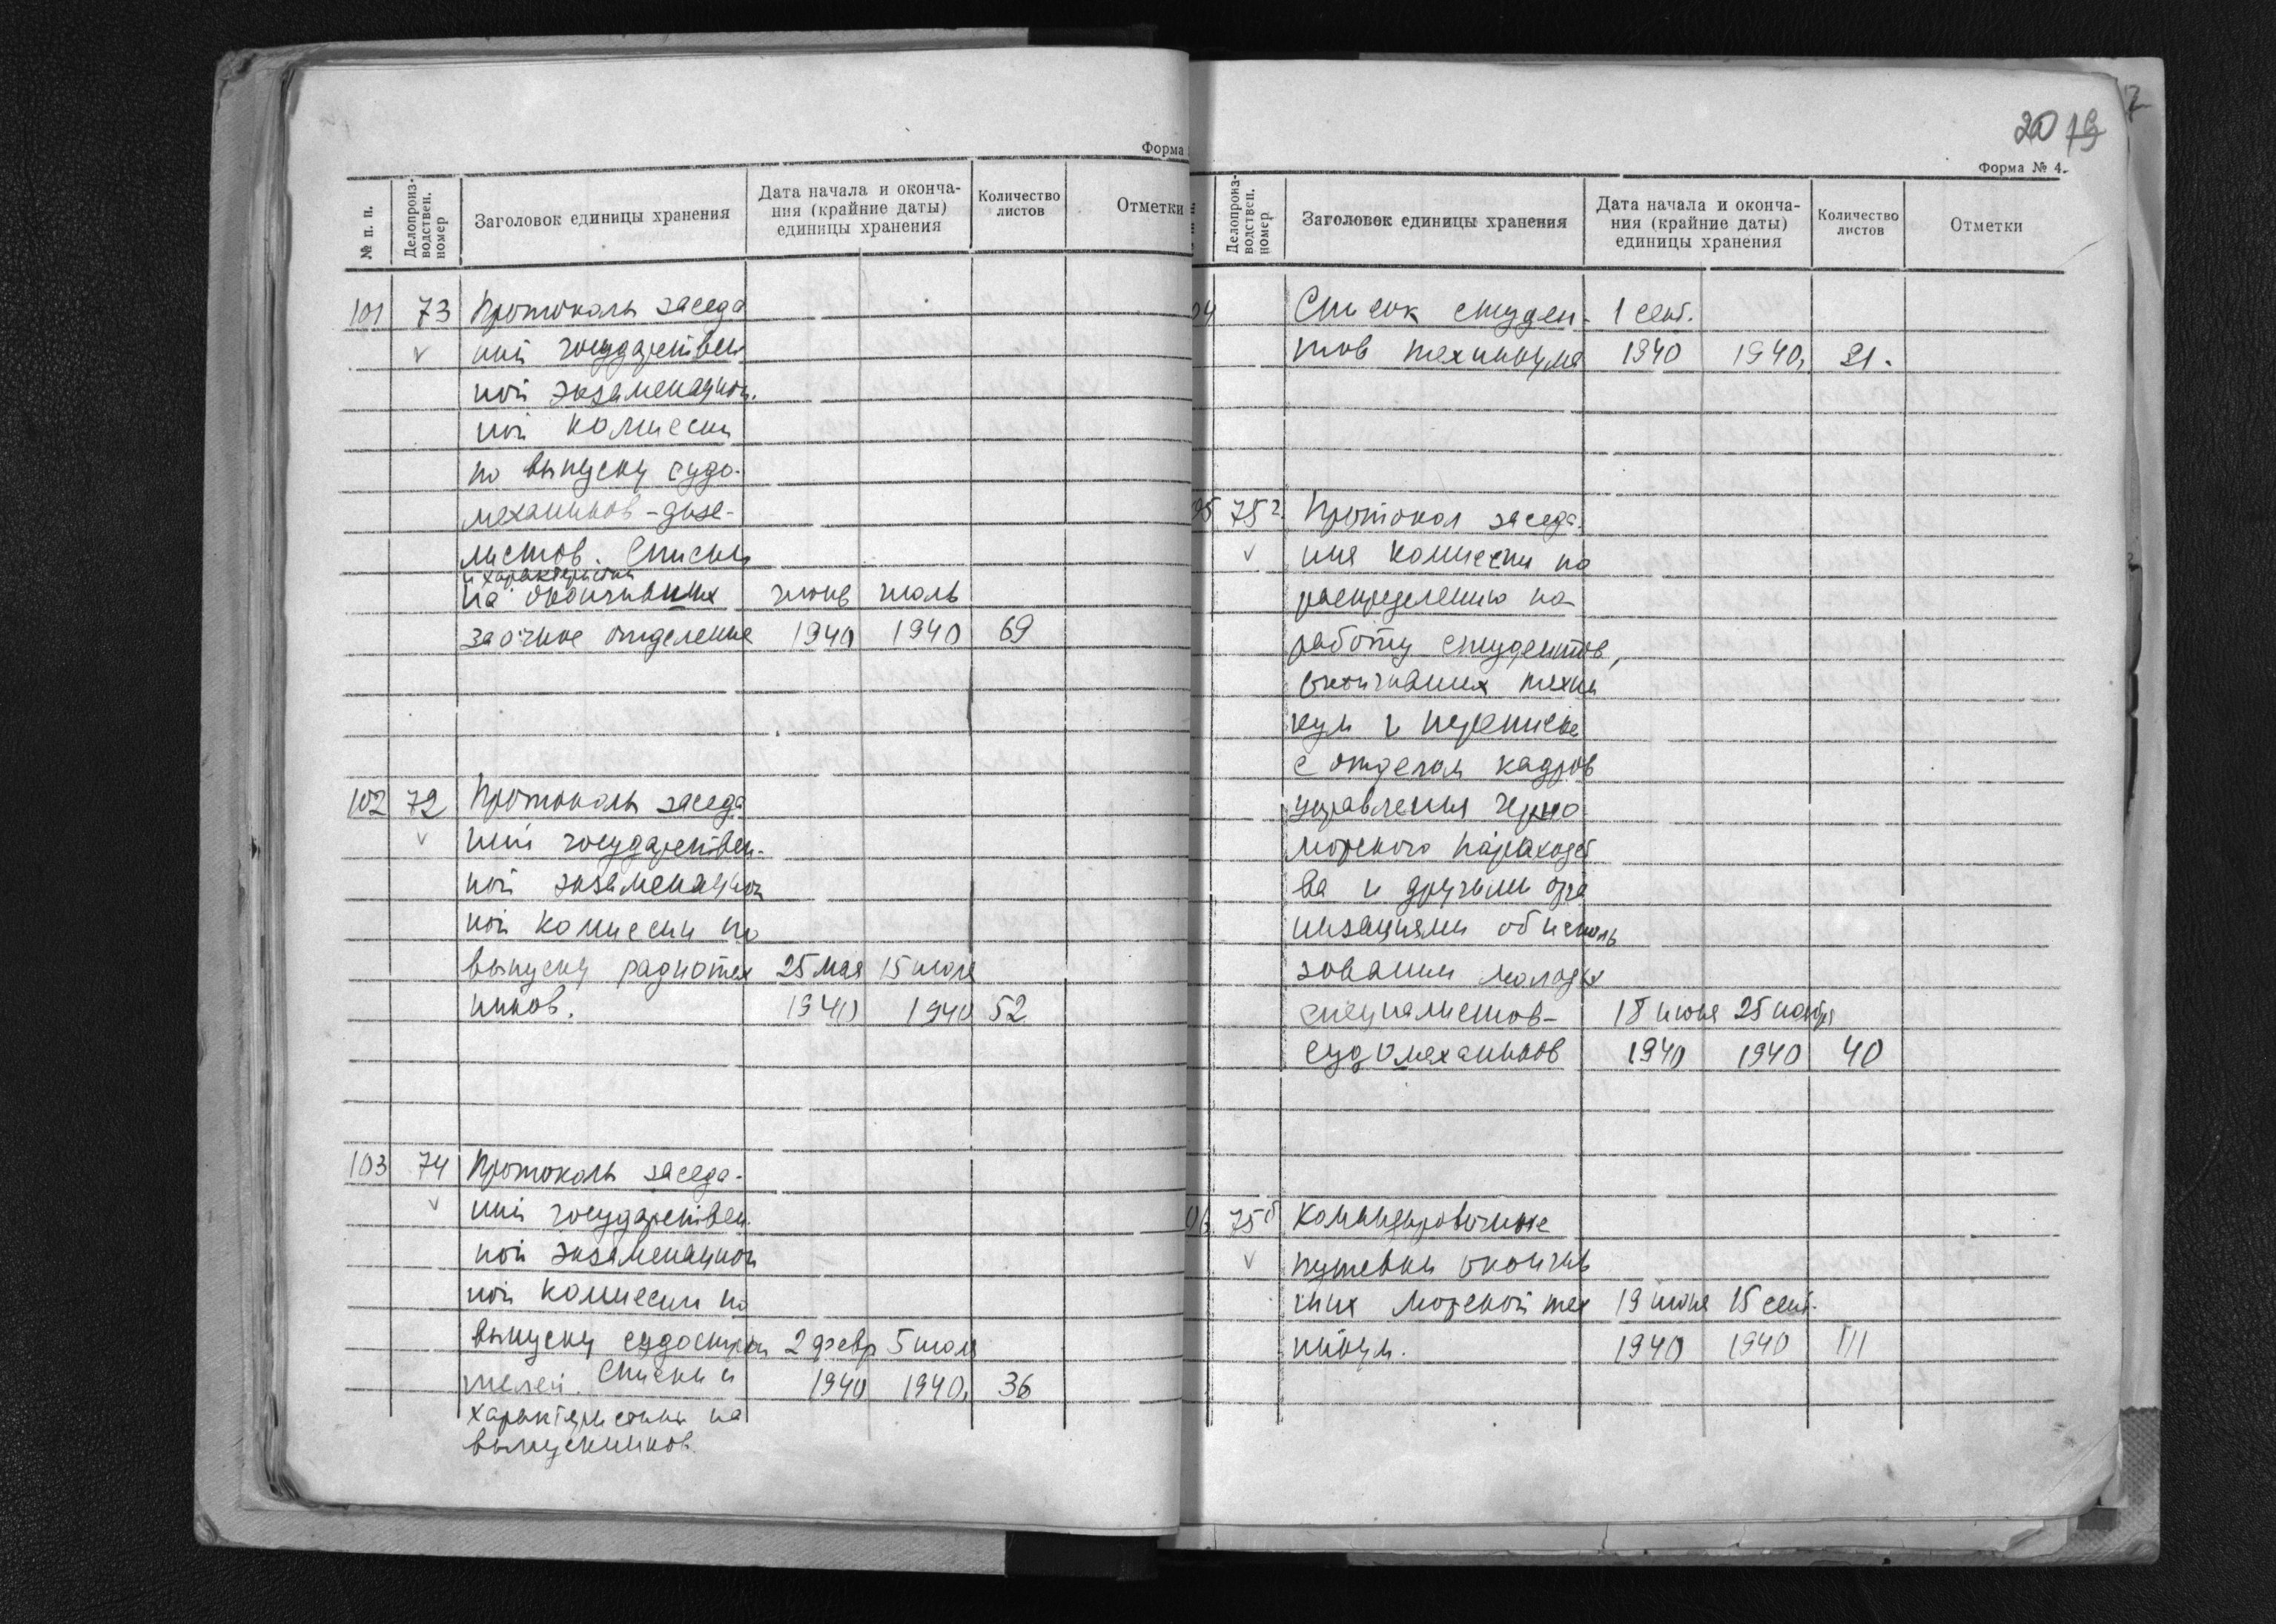 Форма
№ п. п.
Делопроиз-
водствен.
номер
Заголовок единицы хранения
Дата начала и оконча-
ния (крайние даты)
единицы хранения
Количество
листов
Отметки
101 73 Протоколы заседа
ний государствен
ной экзаменацион.
ной комиссии
по выпуску судо-
механиков-дизе-
листов. Списки
и характеристики
на окончивших июнь июль
заочное отделение 1940 1940 69
102 72 Протоколы заседа
ний государствен-
ной экзаменацион
ной комиссии по
выпуску радиотех 25 мая 15 июля
ников. 1940 1940 52
103 74 Протоколы заседа-
ний государствен.
ной экзаменацион
ной комиссии по
выпуску судострои 2 февр 5 июля
телей. Списки и 1940 1940. 36
характеристики на
выпускников.
20 19
Форма № 4.
Делопроиз-
водствен.
номер
Заголовок единицы хранения
Дата начала и оконча-
ния (крайние даты)
единицы хранения
Количество
листов
Отметки
04 Список студен- 1 сент.
тов техникума 1940 1940. 21.
05 75 г. Протокол заседа-
ния комиссии по
распределению на
работу студентов,
окончивших техни
кум и переписка
с отделом кадров
управления Черно
морского пароходст
ва и другими орга
низациями об исполь
зовании молодых
специалистов- 18 июня 25 ноября
судомехаников 1940 1940 40
06 75 б Командировочные
путевки окончив
ших морской тех 19 июня 15 сент.
никум. 1940 1940 111